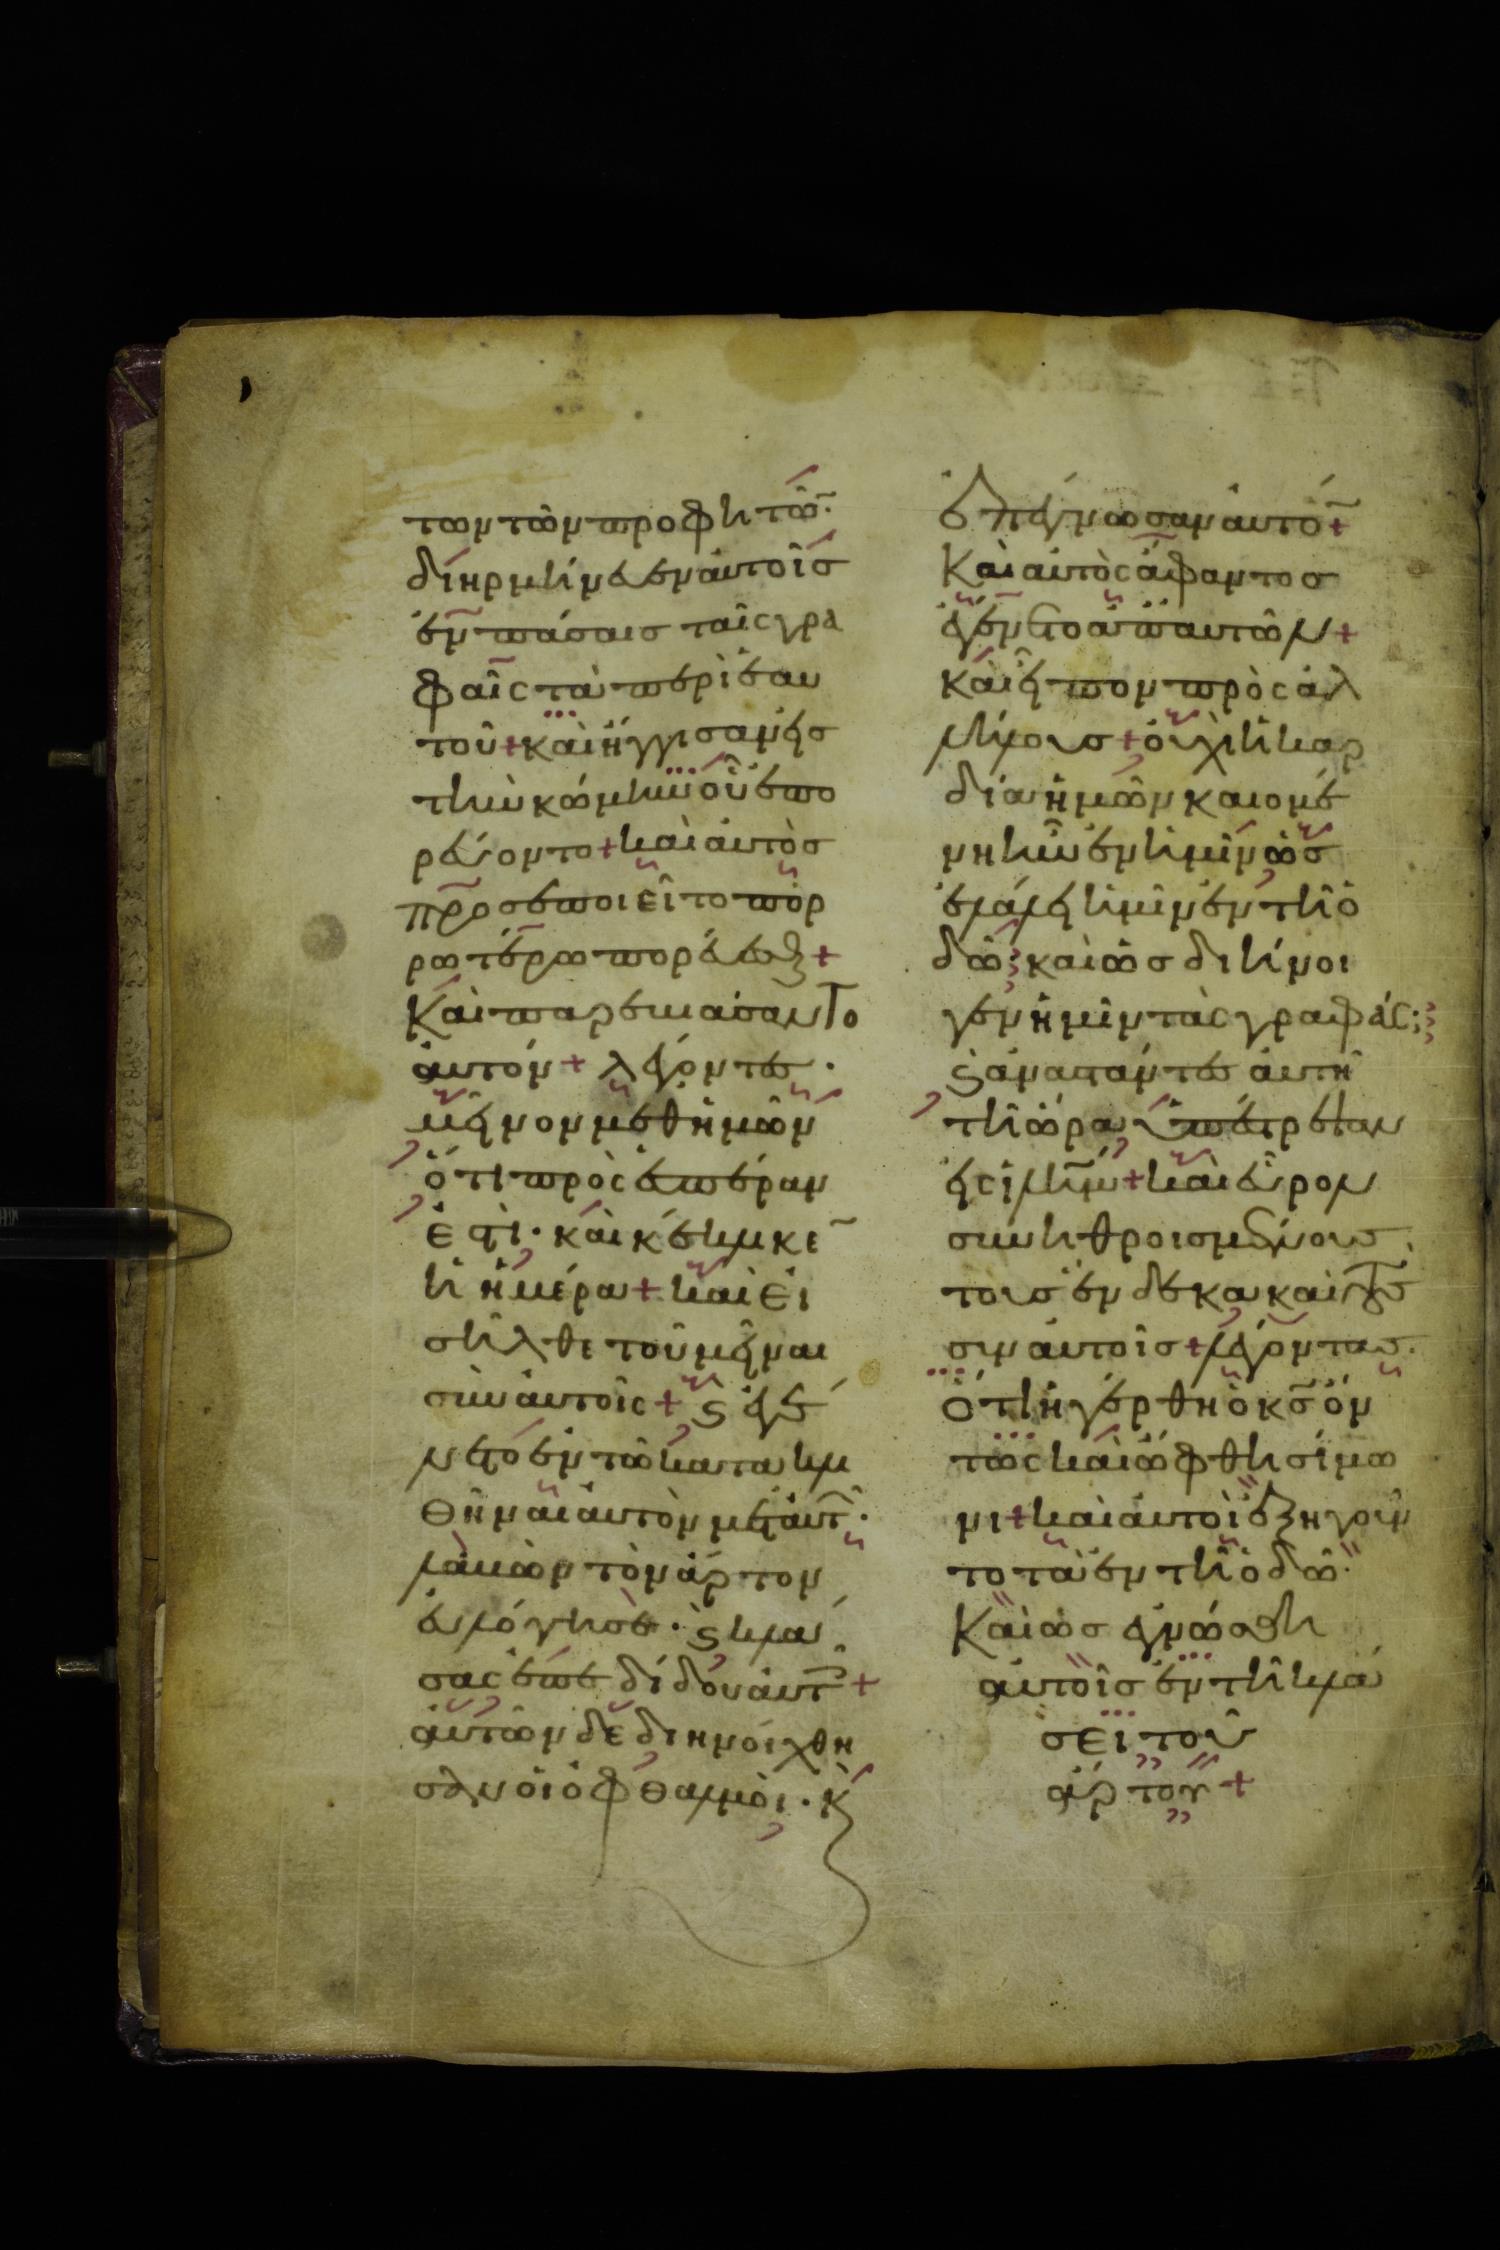 των τῶν προφητῶ̃·
διηρμήνευεν αὐτοῖσ
ἐν πάσαισ ταῖς γρα
φαῖς τὰ περὶ ἑαυ
τοῦ + καὶ ἤγγισαν εἰσ
τὴν κώμην οὗ ἐπο
ρεύοντο + καὶ αὐτὸσ
προσεποιεῖτο πόρ
ρωτέρω πορεύεσθαι +
Καὶ παρεβιάσαντο
αὐτόν + λέγοντεσ·
μεῖνον μεθ ἡμῶν
ὅτι πρὸς ἑσπέραν
ἐστὶ· καὶ κέκλικε
ἡ ἡμέρα + καὶ εἰ
σῆλθε τοῦ μεῖναι
σὺν αὐτοῖς + ϛ ἐγέ
νετο ἐν τῶ κατακλι
θῆναι αὐτὸν μετ αὐτ̃·
λαβὼν τὸν ἄρτον
εὐλόγησε· ϛ κλά
σας ἐπεδίδου αὐτ̃ +
αὐτῶν δὲ διηνοίχθη
σαν οἱ ὀφθαλμοὶ· κ̀
ἐπέγνωσαν αὐτὸ̃ +
Καὶ αὐτὸς ἄφαντοσ
ἐγένετο ἀπ αὐτῶν +
καὶ εἶπον πρὸς ἀλ
λήλουσ + οὐχὶ ἡ καρ
δία ἡμῶν καιομέ
νη ἦν ἐν ἡμῖν ὡσ
ἐλάλει ἡμῖν ἐν τῆ ὁ
δῶ; καὶ ὡσ διήνοι
γεν ἡμῖν τὰς γραφάς;
ϛ ἀναστάντεσ αὐτῆ
τῆ ὥρα ὑπέστρεψαν
εἰς ἱλημ̃ + καὶ εὗρον
συνηθροισμένουσ
τοὺσ ἕνδεκα καὶ τοὺσ
σὺν αὐτοῖσ + λέγοντασ·
Ὅτι ἠγέρθη ὁ κσ̃ ὄν
τως καὶ ὤφθη σίμω
νι + καὶ αὐτοὶ ἐξηγοῦν
το τὰ ἐν τῆ ὁδῶ·
Καὶ ὡσ ἐγνώσθη
αὐτοῖσ ἐν τῆ κλά
σει τοῦ
ἄρτου +